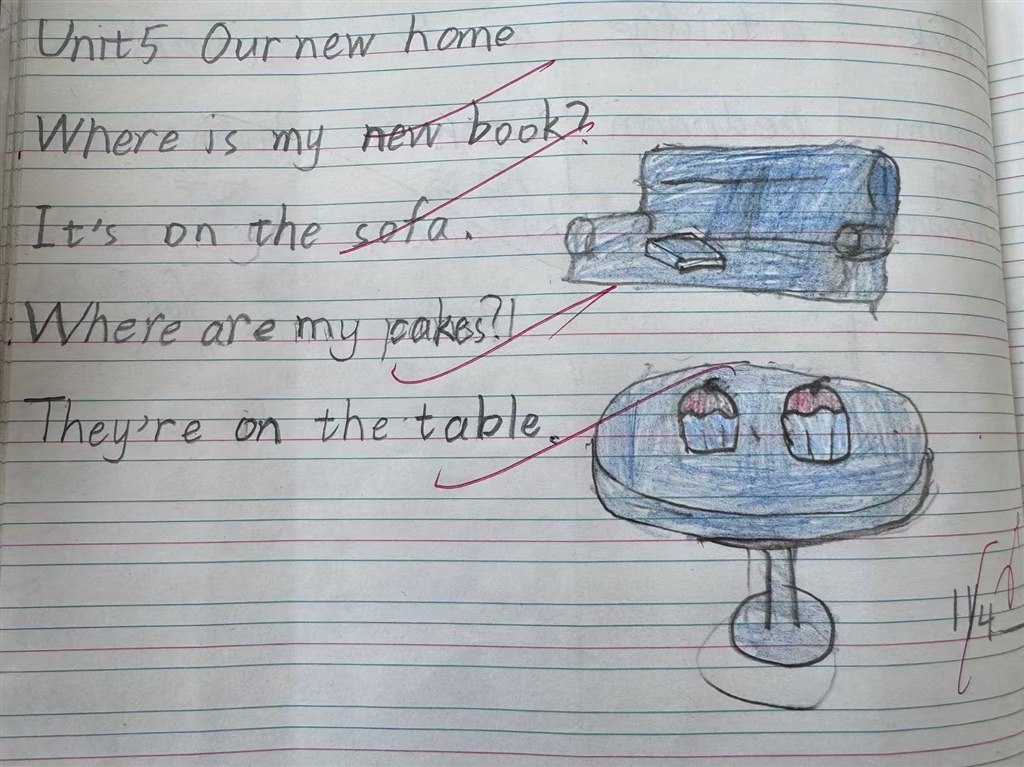 Unit5 Our new home
Where is my new book?
It's on the sofa.
Where are my cakes?
They're on the table.
11/4